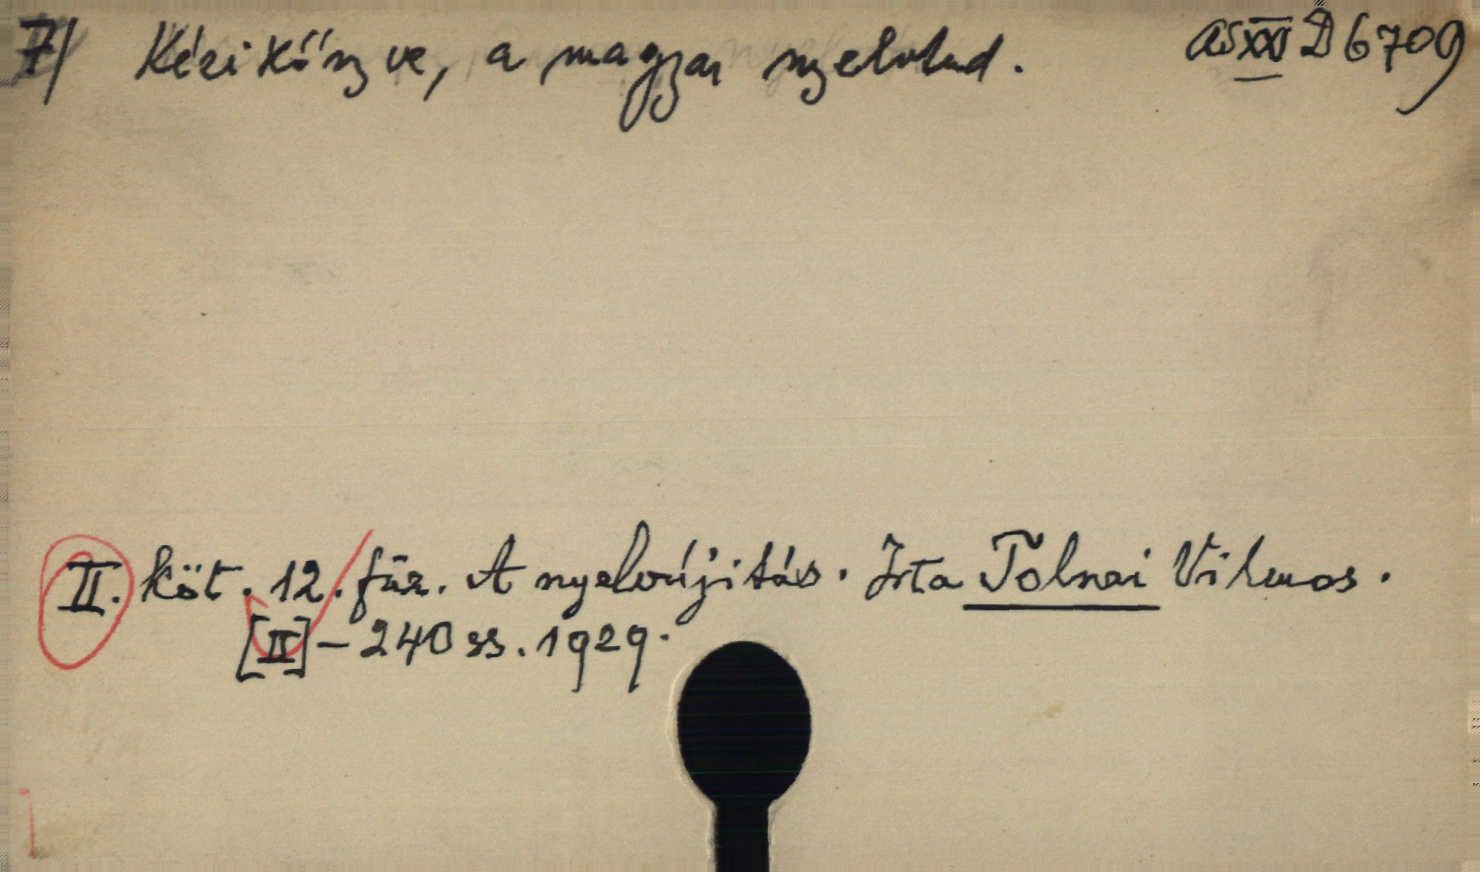 7/ Kézikönyve, a magyar nyelvtud. XXI D 6709
II. köt. 12. füz. A nyelvújítás. Irta Tolnai Vilmos.
[II] - 240 ss. 1929.